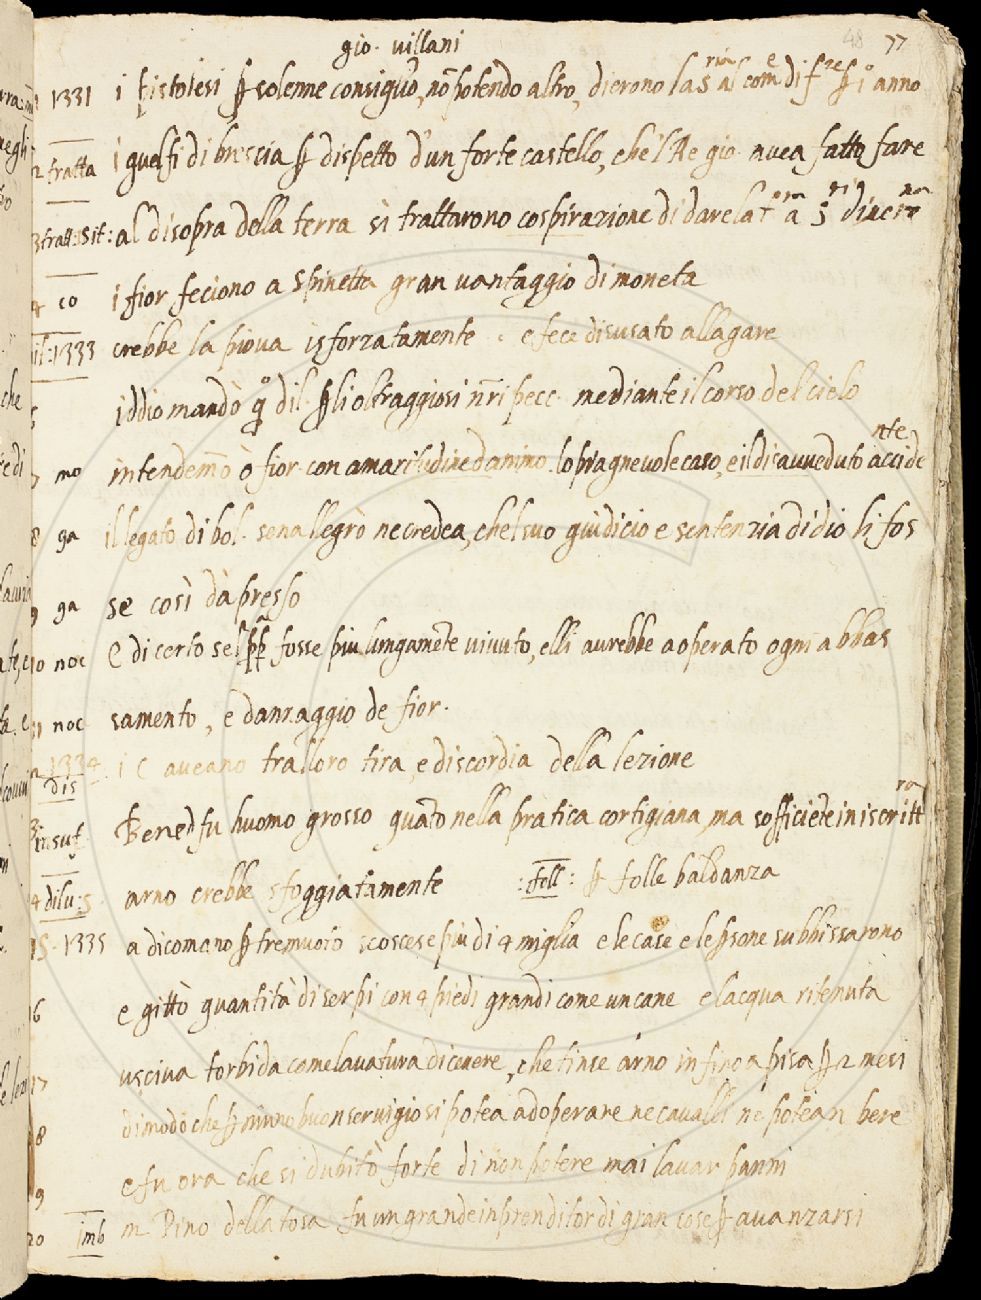 gio. villani
48 77
1331 i pistolesi ꝑ solenne consiglio, nō potendo altro, dierono la s.ria al com.e di f.ze ꝑ i.o anno
2 tratta i guelfi di brescia ꝑ dispetto d'un forte castello, che'l Re gio. avea fatto fare
3 tratt: sit: al disopra della terra sì trattarono cospirazione di dare la t
4 co i fior feciono a Spinetta gran vantaggio di moneta
1333 crebbe la piova isforzatamente. e fece disusato allagare
iddio mandò q.o dil. ꝑ li oltraggiosi nr̄i pecc. mediante il corso del cielo
7 mo intendemō ò fior. con amaritudine d animo. lo piagnevole caso, e il disavveduto accide
nte
8 ga il legato di bol. se n allegrò ne credea, che'l suo giudicio e sentenzia di dio li fos
9 ga se così dà presso
10 noc E di certo se'l pp̄ fosse piu lungamēte vivuto, elli avrebbe aoperato ogni abbas
11 noc samento, e danraggio de fior.
1334 dis i C aveano tra lloro tira, e discordia della lezione
insuf Bened fu huomo grosso quāto nella pratica cortigiana, ma sofficiēte in iscritt
ra
4 dilu: s arno crebbe sfoggiatamente :foll: ꝑ folle baldanza
15 1335 a dicomano ꝑ tremuoto scoscese piu di 4 miglia e le case e le ꝑsone subbissarono
16 e gittò quantità di serpi con 4 piedi grandi come un cane e l acqua ritenuta
17 usciva torbida come lavatura di cenere, che tinse arno in fino a pisa ꝑ 2 mesi
8 di modo che ꝑ niuno buon servigio si potea adoperare ne cavalli ne potean bere
9 e fu ora che si dubitò forte di non potere mai lavar panni
20 imb m Pino della tosa fu un grande inprenditor di gran cose ꝑ avanzarsi